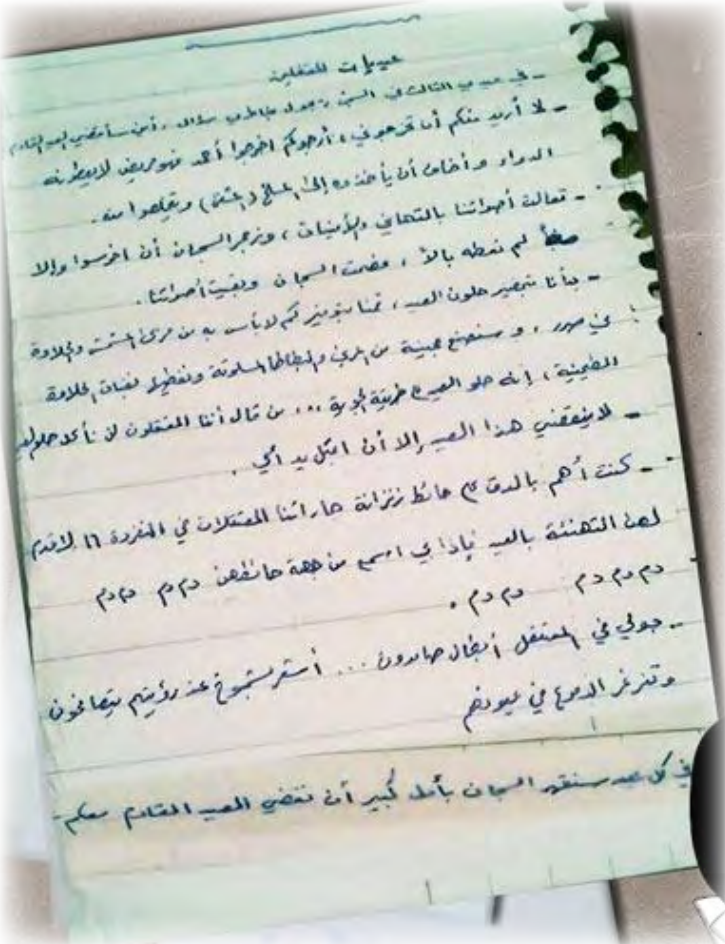 عيديات المعتقلين
- في عيدي الثالث في السجن يجول بخاطري سؤال، أين سأمضي العيد القادم
- لا أريد منكم أن تخرجوني، أرجوكم اخرجوا أحمد فهو مريض لا يعطونه
الدواء وأخاف أن يأخذوه إلى المسلخ (المشفى) ويتخلصوا منه.
- تعالت أصواتنا بالتهاني والأمنيات، وزمجر السجان أن اخرسوا وإلا
لم نعطه بالاً، فصمت السجان وبقيت أصواتنا.
- بدأنا بتحضير حلون العيد، قمنا بتوفير كم لا بأس به من مربى المشمش والحلاوة
في مهجر، و سنصنع عجينة من المربى والبطاطا المسلوقة ونغطيها بفتات الحلاوة
الطحينية، إنه حلو العيد ع طريقة الحرية ... من قال أننا المعتقلون لن نأكل حلو العيد
- لا ينقصني هذا العيد إلا أن أقبّل يد أمي.
- كنت أهم بالدق ع حائط زنزانة جاراتنا المعتقلات في المنفردة ١٦ لاقدم
لهن التهنئة بالعيد فإذا بي اسمع من جهة حائطهن دم دم دم دم
دم دم دم دم دم.
- حولي في المعتقل أبطال صامدون ... أستقر بشموخ عند رؤيتهم يتصافحون
وتغرغر الدموع في عيونهم
في كل عيد سنقهر السجان بأمل كبير أن نقضي العيد القادم معكم -